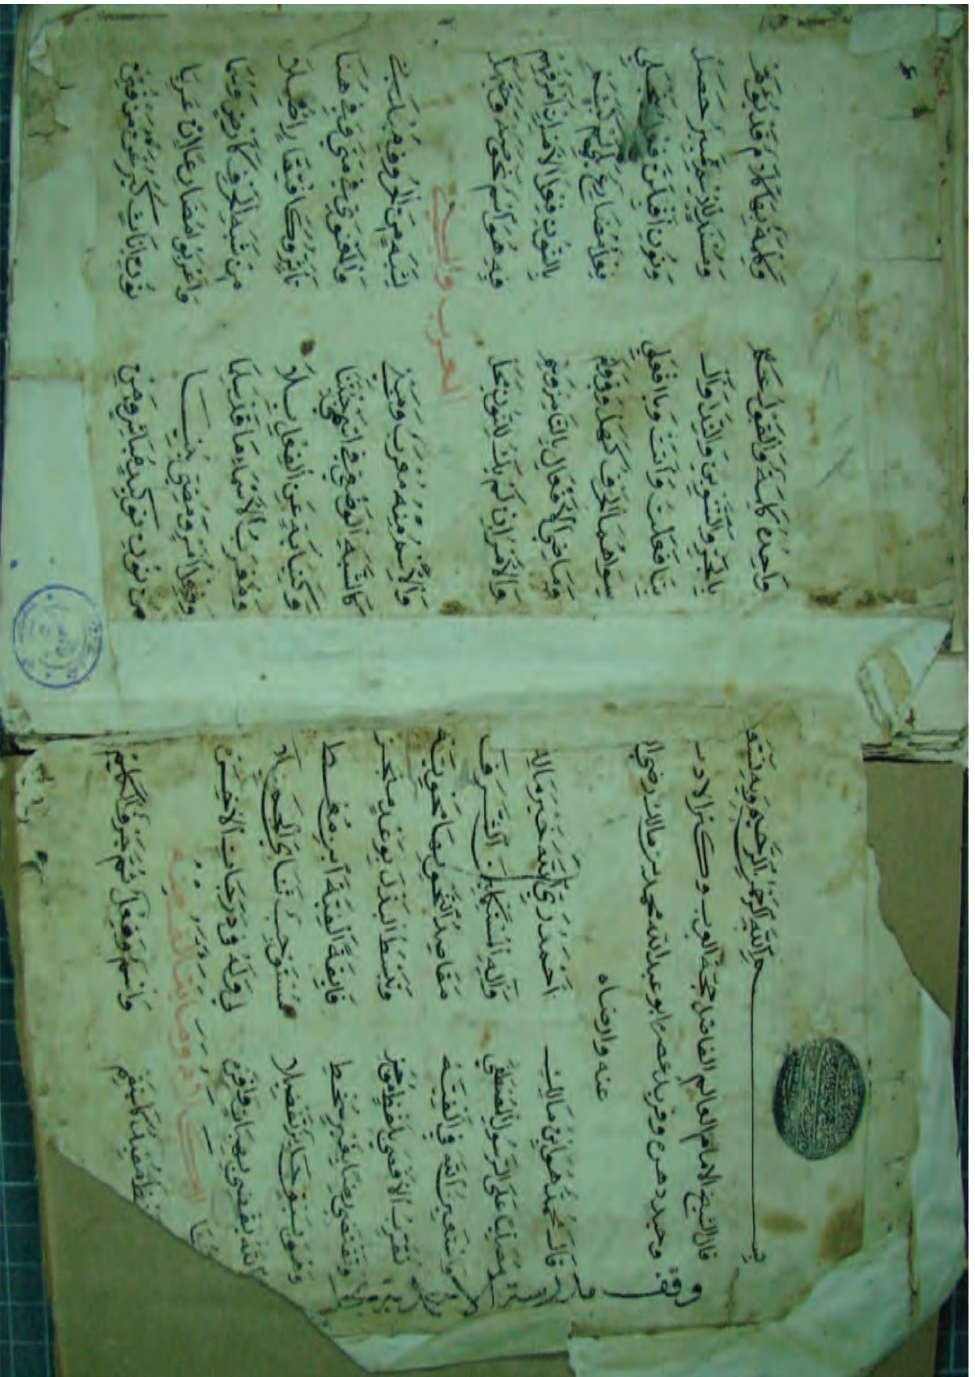 بسم الله الرحمن الرحيم وبه نستعين
قال الشيخ الامام العالم الفاضل حجة العرب وكنز الادب
وحيد دهره وفريد عصره ابو عبد الله محمد بن مالك رضي الله
عنه وارضاه
قَالَ مُحَمَّدٌ هُوَ ابْنُ مَالِكِ أَحْمَدُ رَبِّي اللهَ خَيْرَ مَالِكِ
مُصَلِّيًا عَلَى الرَّسُولِ الْمُصْطَفَى وَآلِهِ الْمُسْتَكْمِلِينَ الشَّرَفَا
وَأَسْتَعِينُ اللهَ فِي أَلْفِيَّهْ مَقَاصِدُ النَّحْوِ بِهَا مَحْوِيَّهْ
تُقَرِّبُ الْأَقْصَى بِلَفْظٍ مُوجَزِ وَتَبْسُطُ الْبَذْلَ بِوَعْدٍ مُنْجَزِ
وَتَقْتَضِي رِضًا بِغَيْرِ سُخْطِ فَايِقَةً أَلْفِيَّةَ ابْنِ مُعْطِ
وَهْوَ بِسَبْقٍ حَايِزٌ تَفْضِيلَا مُسْتَوْجِبٌ ثَنَائِيَ الْجَمِيلَا
اللهُ يَقْضِي بِهِبَاتٍ وَافِرَهْ لِي وَلَهُ فِي دَرَجَاتِ الْآخِرَهْ
الكلام وما يتألف منه
لَفْظٌ مُفِيدٌ كَاسْتَقِمْ وَاسْمٌ وَفِعْلٌ ثُمَّ حَرْفٌ الْكَلِمْ
وقف مدرسة
وَاحِدُهُ كَلِمَةٌ وَالْقَوْلُ عَمْ وَكَلِمَةٌ بِهَا كَلَامٌ قَدْ يُؤَمْ
بِالْجَرِّ وَالتَّنْوِينِ وَالنِّدَا وَأَلْ وَمُسْنَدٍ لِلِاسْمِ تَمْيِيزٌ حَصَلْ
بِتَا فَعَلْتَ وَأَتَتْ وَيَا افْعَلِي وَنُونِ أَقْبِلَنَّ فِعْلٌ يَنْجَلِي
سِوَاهُمَا الْحَرْفُ كَهَلْ وَفِي وَلَمْ فِعْلٌ مُضَارِعٌ يَلِي لَمْ كَيَشَمْ
وَمَاضِيَ الْأَفْعَالِ بِالتَّا مِزْ وَسِمْ بِالنُّونِ فِعْلَ الْأَمْرِ إِنْ أَمْرٌ فُهِمْ
وَالْأَمْرُ إِنْ لَمْ يَكُ لِلنُّونِ مَحَلْ فِيهِ هُوَ اسْمٌ نَحْوُ صَهْ وَحَيَّهَلْ
المعرب والمبني
وَالِاسْمُ مِنْهُ مُعْرَبٌ وَمَبْنِي لِشَبَهٍ مِنَ الْحُرُوفِ مُدْنِي
كَالشَّبَهِ الْوَضْعِيِّ فِي اسْمَيْ جِئْتَنَا وَالْمَعْنَوِيِّ فِي مَتَى وَفِي هُنَا
وَكَنِيَابَةٍ عَنِ الْفِعْلِ بِلَا تَأَثُّرٍ وَكَافْتِقَارٍ أُصِّلَا
وَمُعْرَبُ الْأَسْمَاءِ مَا قَدْ سَلِمَا مِنْ شَبَهِ الْحَرْفِ كَأَرْضٍ وَسُمَا
وَفِعْلُ أَمْرٍ وَمُضِيٍّ بُنِيَا وَأَعْرَبُوا مُضَارِعًا إِنْ عَرِيَا
مِنْ نُونِ تَوْكِيدٍ مُبَاشِرٍ وَمِنْ نُونِ إِنَاثٍ كَيَرُعْنَ مَنْ فُتِنْ